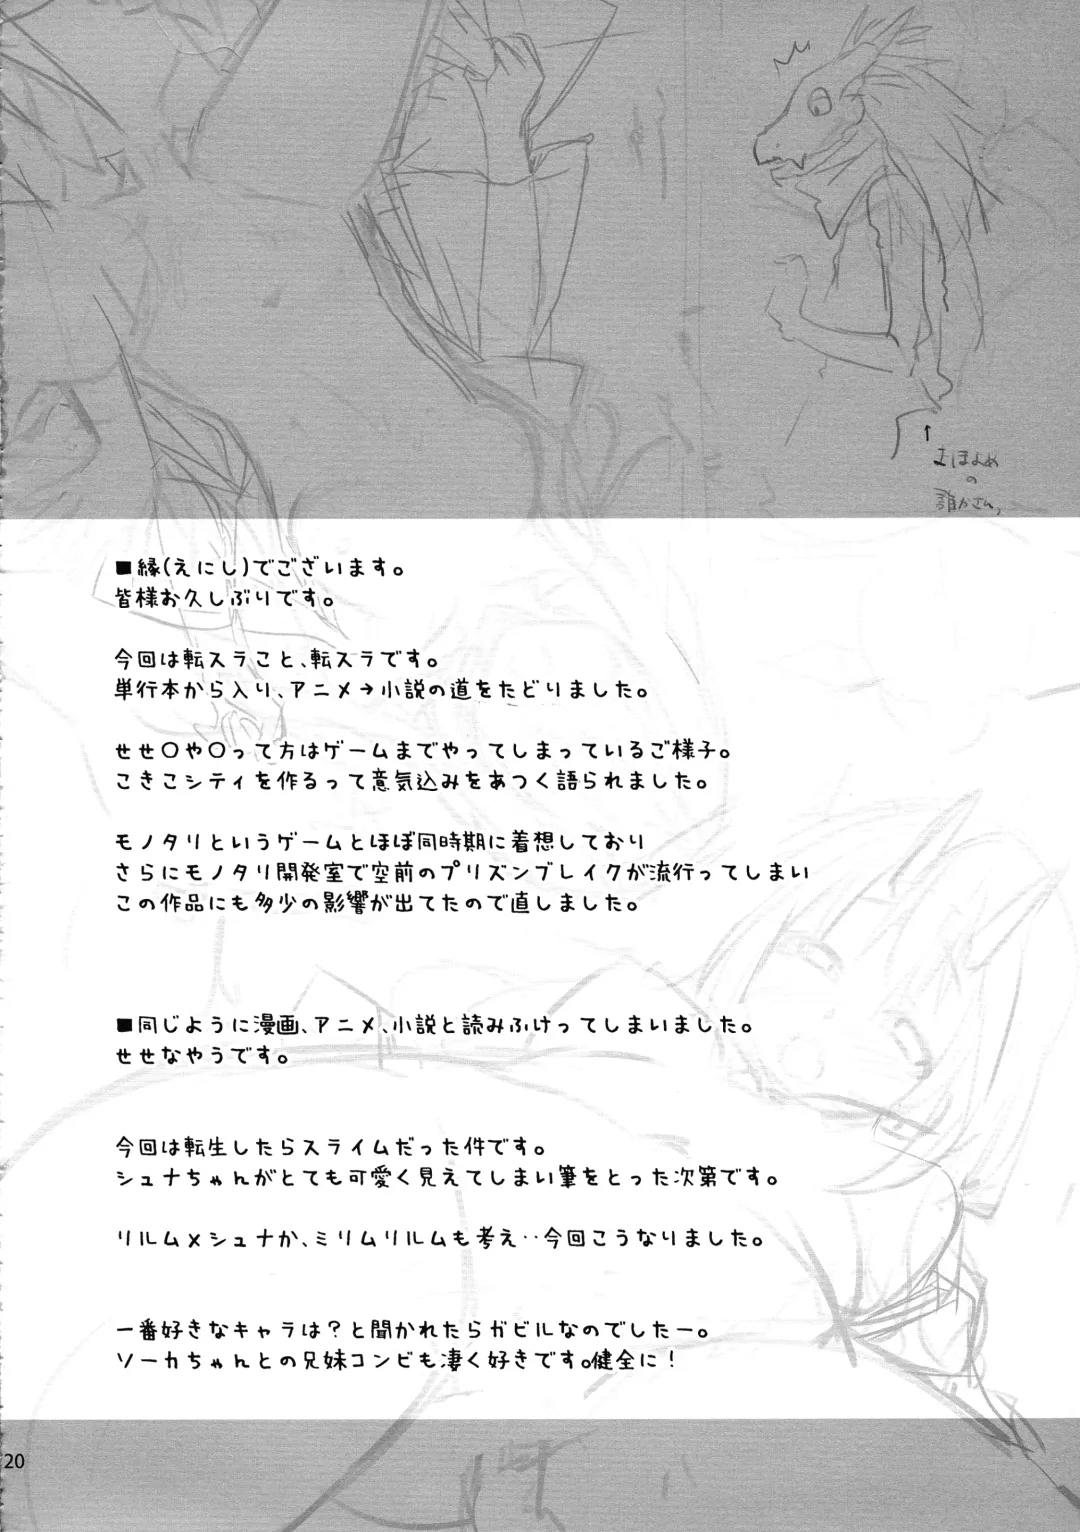 ↑
まほよめ
の
誰かさん、
■縁(えにし)でございます。
皆様お久しぶりです。
今回は転スラこと、転スラです。
単行本から入り、アニメ→小説の道をたどりました。
せせ〇や〇って方はゲームまでやってしまっているご様子。
こきこシティを作るって意気込みをあつく語られました。
モノタリというゲームとほぼ同時期に着想しており
さらにモノタリ開発室で空前のプリズンブレイクが流行ってしまい
この作品にも多少の影響が出てたので直しました。
■同じように漫画、アニメ、小説と読みふけってしまいました。
せせなやうです。
今回は転生したらスライムだった件です。
シュナちゃんがとても可愛く見えてしまい筆をとった次第です。
リルム×シュナか、ミリムリルムも考え‥今回こうなりました。
一番好きなキャラは？と聞かれたらガビルなのでしたー。
ソーカちゃんとの兄妹コンビも凄く好きです。健全に！
20